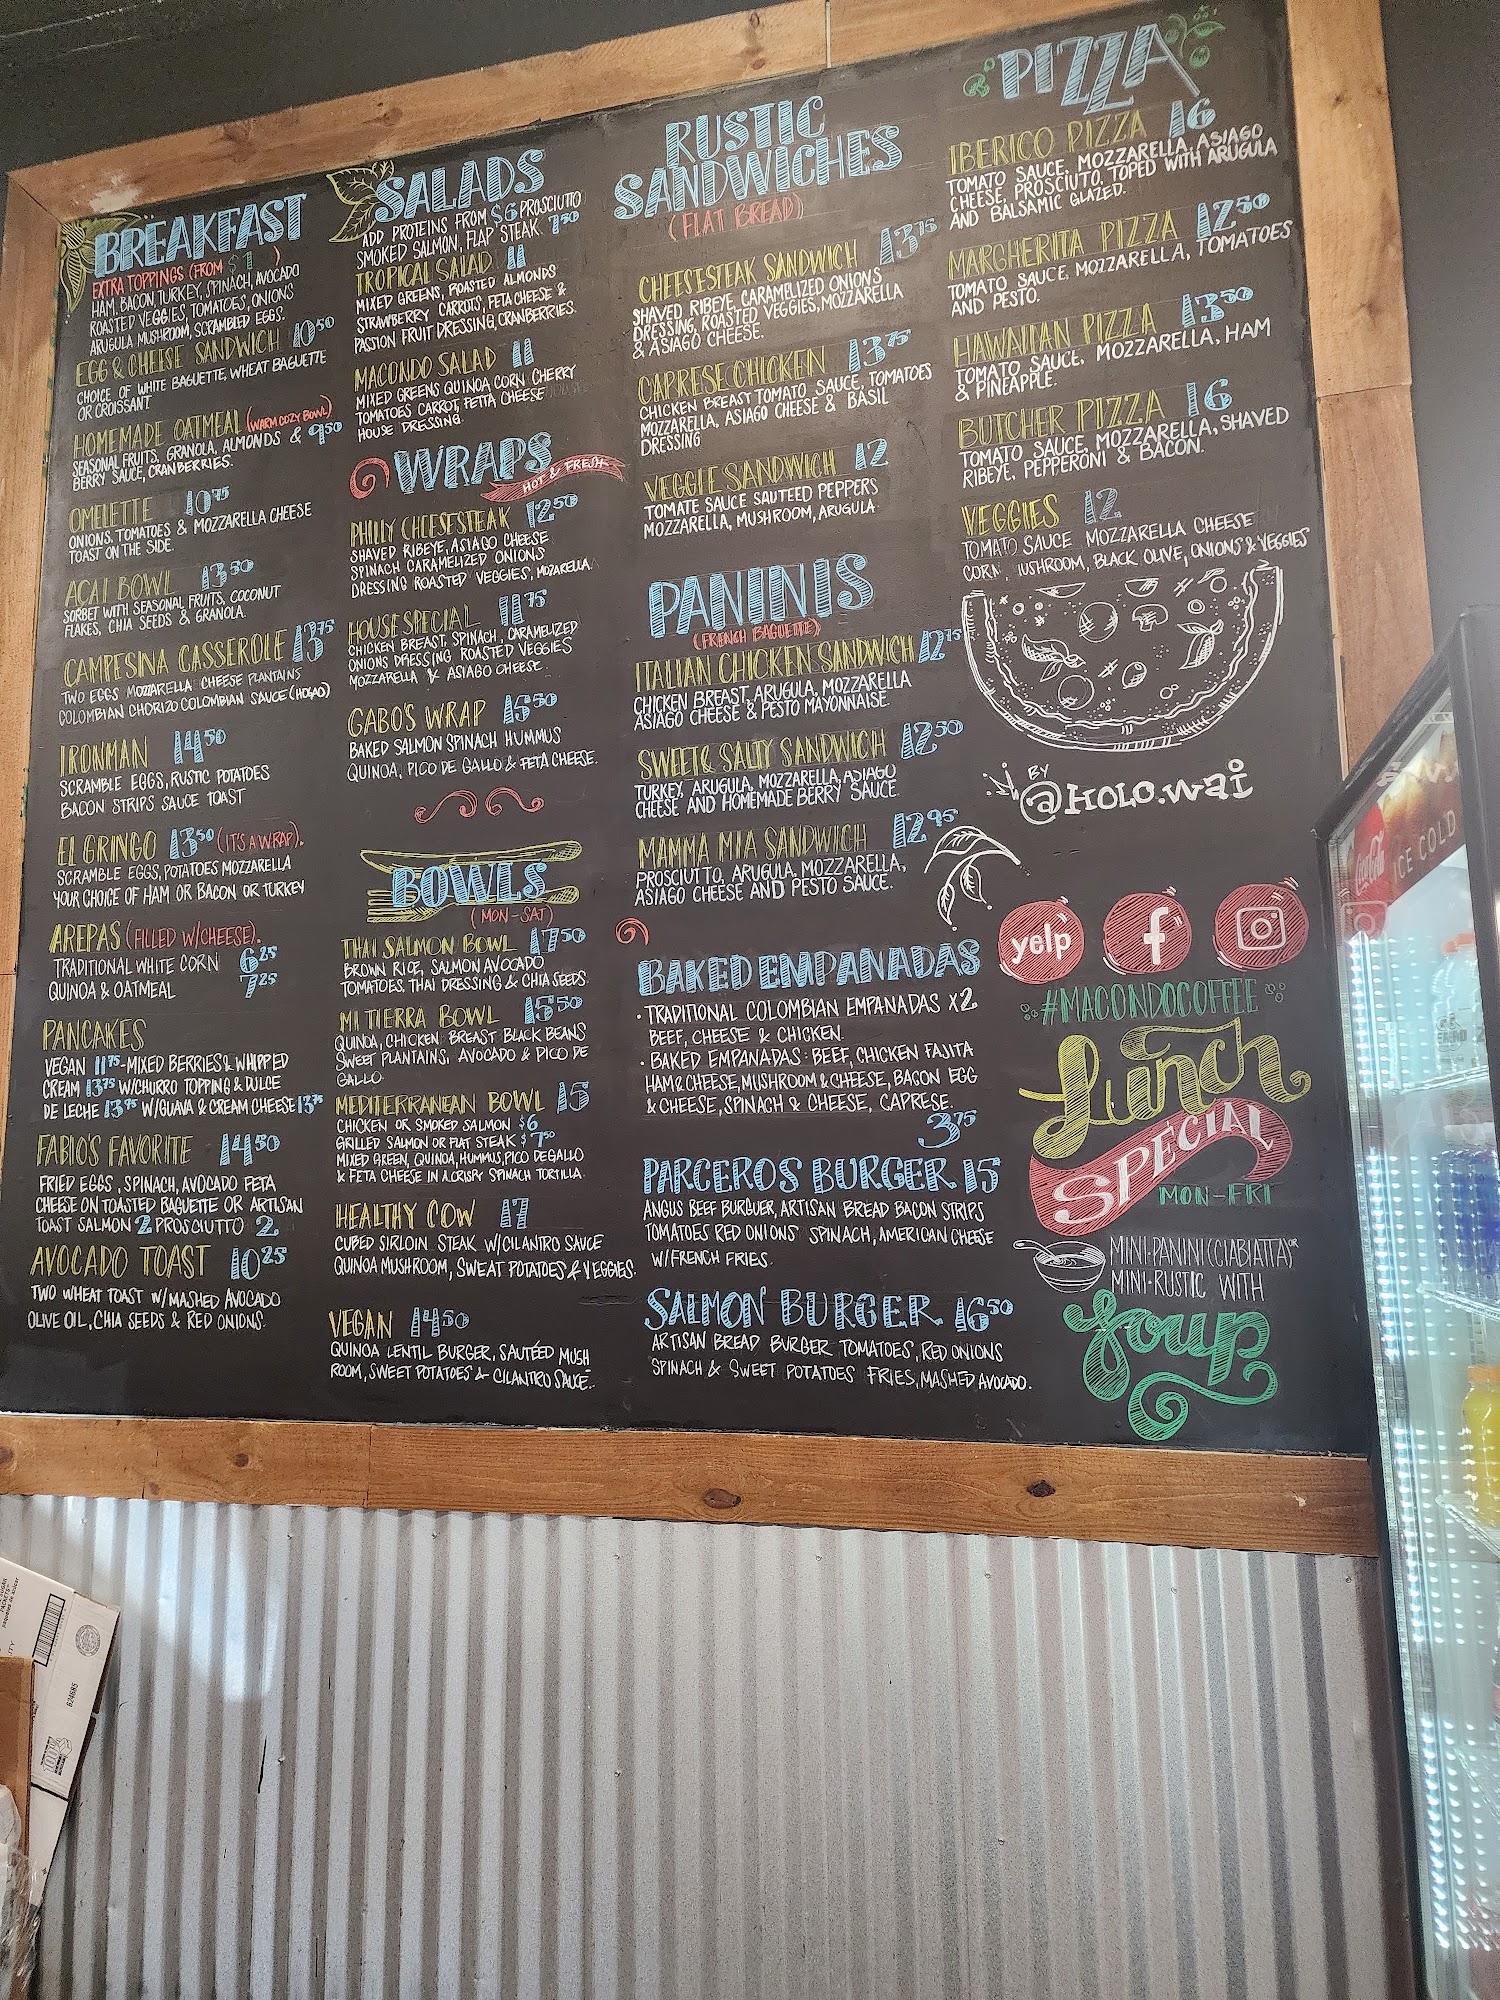 BREAKFAST
EXTRA TOPPINGS (FROM $1 )
HAM, BACON, TURKEY, SPINACH, AVOCADO
ROASTED VEGGIES, TOMATOES, ONIONS
ARUGULA MUSHROOM, SCRAMBLED EGGS.
EGG & CHEESE SANDWICH 10 50
CHOICE OF WHITE BAGUETTE, WHEAT BAGUETTE
OR CROISSANT
HOMEMADE OATMEAL (WARM COZY BOWL)
SEASONAL FRUITS, GRANOLA, ALMONDS & 9 50
BERRY SAUCE, CRANBERRIES.
OMELETTE 10 75
ONIONS, TOMATOES & MOZZARELLA CHEESE
TOAST ON THE SIDE.
ACAI BOWL 13 50
SORBET WITH SEASONAL FRUITS, COCONUT
FLAKES, CHIA SEEDS & GRANOLA.
CAMPESINA CASSEROLE 13 75
TWO EGGS MOZZARELLA CHEESE PLANTAINS
COLOMBIAN CHORIZO COLOMBIAN SAUCE (HOGAO)
IRONMAN 14 50
SCRAMBLE EGGS, RUSTIC POTATOES
BACON STRIPS SAUCE TOAST
EL GRINGO 13 50 (IT'S A WRAP).
SCRAMBLE EGGS, POTATOES MOZZARELLA
YOUR CHOICE OF HAM OR BACON OR TURKEY
AREPAS (FILLED W/CHEESE).
TRADITIONAL WHITE CORN 6 25
QUINOA & OATMEAL 7 25
PANCAKES
VEGAN 11 75 - MIXED BERRIES & WHIPPED
CREAM 13 75 W/CHURRO TOPPING & DULCE
DE LECHE 13 75 W/GUAVA & CREAM CHEESE 13 75
FABIO'S FAVORITE 14 50
FRIED EGGS, SPINACH, AVOCADO FETA
CHEESE ON TOASTED BAGUETTE OR ARTISAN
TOAST SALMON 2 PROSCIUTTO 2
AVOCADO TOAST 10 25
TWO WHEAT TOAST W/MASHED AVOCADO
OLIVE OIL, CHIA SEEDS & RED ONIONS.
SALADS
ADD PROTEINS FROM $6 PROSCIUTTO
SMOKED SALMON, FLAP STEAK. 7 50
TROPICAL SALAD 11
MIXED GREENS, ROASTED ALMONDS
STRAWBERRY CARROTS, FETA CHEESE &
PASSION FRUIT DRESSING, CRANBERRIES.
MACONDO SALAD 11
MIXED GREENS QUINOA CORN CHERRY
TOMATOES CARROT, FETTA CHEESE
HOUSE DRESSING.
WRAPS
HOT & FRESH
PHILLY CHEESESTEAK 12 50
SHAVED RIBEYE, ASIAGO CHEESE
SPINACH CARAMELIZED ONIONS
DRESSING ROASTED VEGGIES, MOZARELLA
HOUSE SPECIAL 11 75
CHICKEN BREAST, SPINACH, CARAMELIZED
ONIONS DRESSING ROASTED VEGGIES
MOZZARELLA & ASIAGO CHEESE.
GABO'S WRAP 15 50
BAKED SALMON SPINACH HUMMUS
QUINOA, PICO DE GALLO & FETA CHEESE.
BOWLS
(MON-SAT)
THAI SALMON BOWL 17 50
BROWN RICE, SALMON AVOCADO
TOMATOES, THAI DRESSING & CHIA SEEDS.
MI TIERRA BOWL 15 50
QUINOA, CHICKEN BREAST BLACK BEANS
SWEET PLANTAINS, AVOCADO & PICO DE
GALLO.
MEDITERRANEAN BOWL 15
CHICKEN OR SMOKED SALMON $6
GRILLED SALMON OR FLAT STEAK $7 50
MIXED GREEN, QUINOA, HUMMUS, PICO DE GALLO
& FETA CHEESE IN A CRISPY SPINACH TORTILLA.
HEALTHY COW 17
CUBED SIRLOIN STEAK W/CILANTRO SAUCE
QUINOA MUSHROOM, SWEAT POTATOES & VEGGIES.
VEGAN 14 50
QUINOA LENTIL BURGER, SAUTÉED MUSH
ROOM, SWEET POTATOES & CILANTRO SAUCE.
RUSTIC
SANDWICHES
(FLAT BREAD)
CHEESESTEAK SANDWICH 13 75
SHAVED RIBEYE, CARAMELIZED ONIONS
DRESSING, ROASTED VEGGIES, MOZZARELLA
& ASIAGO CHEESE.
CAPRESE CHICKEN 13 75
CHICKEN BREAST TOMATO SAUCE, TOMATOES
MOZZARELLA, ASIAGO CHEESE & BASIL
DRESSING
VEGGIE SANDWICH 12
TOMATE SAUCE SAUTEED PEPPERS
MOZZARELLA, MUSHROOM, ARUGULA.
PANINIS
(FRENCH BAGUETTE)
ITALIAN CHICKEN SANDWICH 12 75
CHICKEN BREAST, ARUGULA, MOZZARELLA
ASIAGO CHEESE & PESTO MAYONNAISE.
SWEET & SALTY SANDWICH 12 50
TURKEY, ARUGULA, MOZZARELLA, ASIAGO
CHEESE AND HOMEMADE BERRY SAUCE.
MAMMA MIA SANDWICH 12 95
PROSCIUTTO, ARUGULA, MOZZARELLA,
ASIAGO CHEESE AND PESTO SAUCE.
BAKED EMPANADAS
• TRADITIONAL COLOMBIAN EMPANADAS X2
BEEF, CHEESE & CHICKEN.
• BAKED EMPANADAS: BEEF, CHICKEN FAJITA
HAM & CHEESE, MUSHROOM & CHEESE, BACON EGG
& CHEESE, SPINACH & CHEESE, CAPRESE.
3 75
PARCEROS BURGER 15
ANGUS BEEF BURGUER, ARTISAN BREAD BACON STRIPS
TOMATOES RED ONIONS SPINACH, AMERICAN CHEESE
W/FRENCH FRIES.
SALMON BURGER 16 50
ARTISAN BREAD BURGER TOMATOES, RED ONIONS
SPINACH & SWEET POTATOES FRIES, MASHED AVOCADO.
PIZZA
IBERICO PIZZA 16
TOMATO SAUCE, MOZZARELLA, ASIAGO
CHEESE, PROSCIUTO, TOPED WITH ARUGULA
AND BALSAMIC GLAZED.
MARGHERITA PIZZA 12 50
TOMATO SAUCE, MOZZARELLA, TOMATOES
AND PESTO.
HAWAIIAN PIZZA 13 50
TOMATO SAUCE, MOZZARELLA, HAM
& PINEAPPLE.
BUTCHER PIZZA 16
TOMATO SAUCE, MOZZARELLA, SHAVED
RIBEYE, PEPPERONI & BACON.
VEGGIES 12
TOMATO SAUCE MOZZARELLA CHEESE
CORN, MUSHROOM, BLACK OLIVE, ONIONS & VEGGIES
BY
@HOLO.WAI
yelp
f
#MACONDOCOFFEE
Lunch
SPECIAL
MON-FRI
MINI-PANINI (CIABIATTA) OR
MINI-RUSTIC WITH
Soup
Coca-Cola
ICE COLD
624685